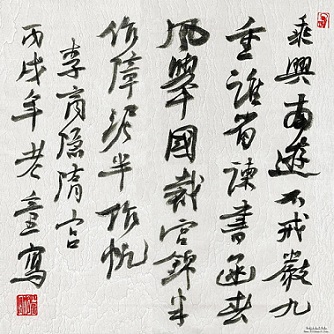 乘興南遊不戒嚴九
重誰省諫書函春
風舉國裁宮錦半
作障泥半作帆
李商隱隋宮
丙戌年老童寫